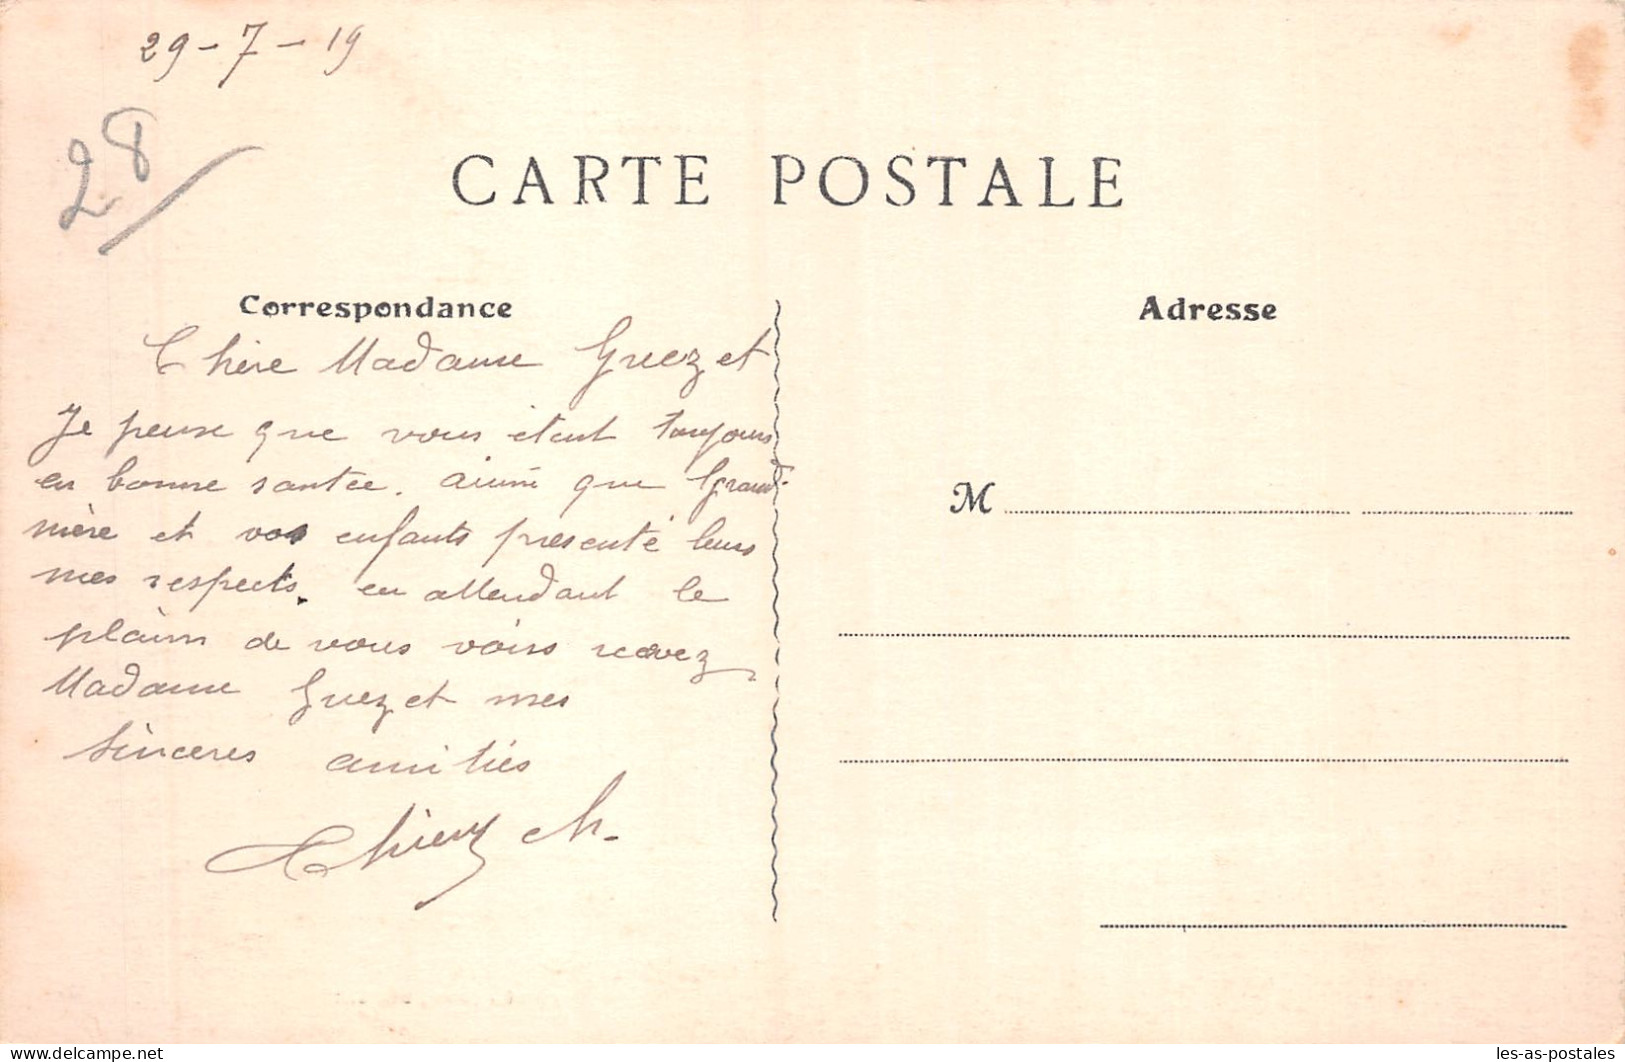 29-7-19
28
CARTE POSTALE
Correspondance
Adresse
Chère Madame Gruezet
Je pense que vous étant toujours
en bonne santée. ainsi que Grand-
mère et vos enfants présenté leurs
mes respects. en attendant le
plaisir de vous voirs recevez
Madame Gruezet mes
Sincères amitiés
Thiery ch.
M
delcampe.net
les-as-postales